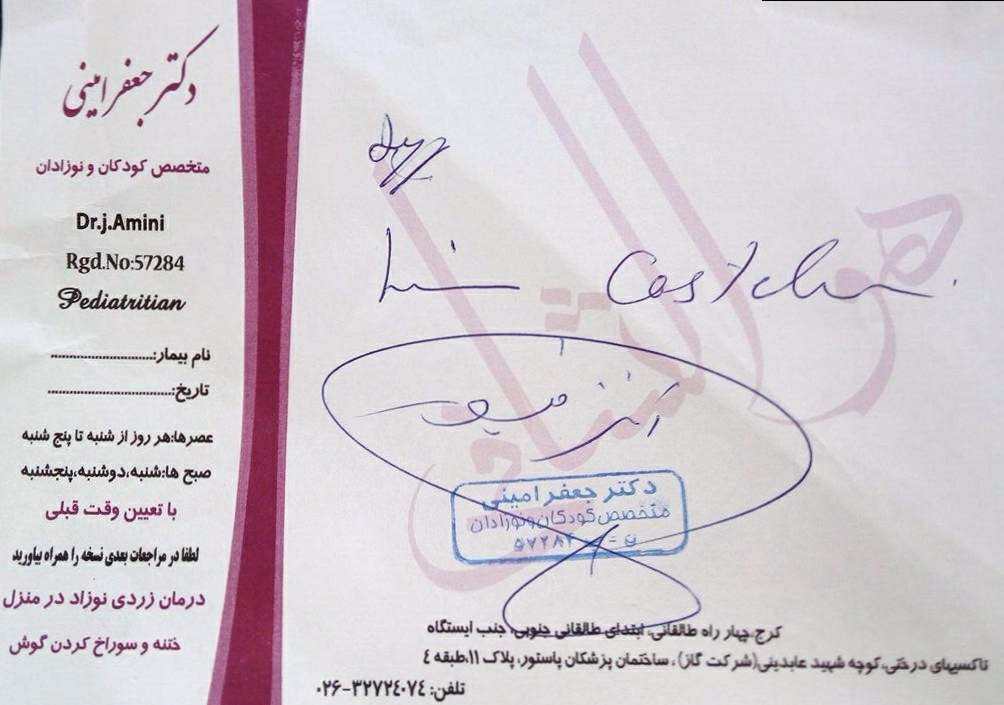 دکتر جعفر امینی
متخصص کودکان و نوزادان
Dr.j.Amini
Rgd.No:57284
Pediatritian
نام بیمار:..........................
تاریخ:................................
عصرها:هر روز از شنبه تا پنج شنبه
صبح ها:شنبه،دوشنبه،پنجشنبه
با تعیین وقت قبلی
لطفا در مراجعات بعدی نسخه را همراه بیاورید
درمان زردی نوزاد در منزل
ختنه و سوراخ کردن گوش
هوالشافی
دکتر جعفر امینی
متخصص کودکان و نوزادان
۵۷۲۸۴
کرج،چهار راه طالقانی، ابتدای طالقانی جنوبی، جنب ایستگاه
تاکسیهای درختی،کوچه شهید عابدینی(شرکت گاز)، ساختمان پزشکان پاستور، پلاک ۱۱،طبقه ٤
تلفن: ۳۲۷۲٤۰۷٤-۰۲۶